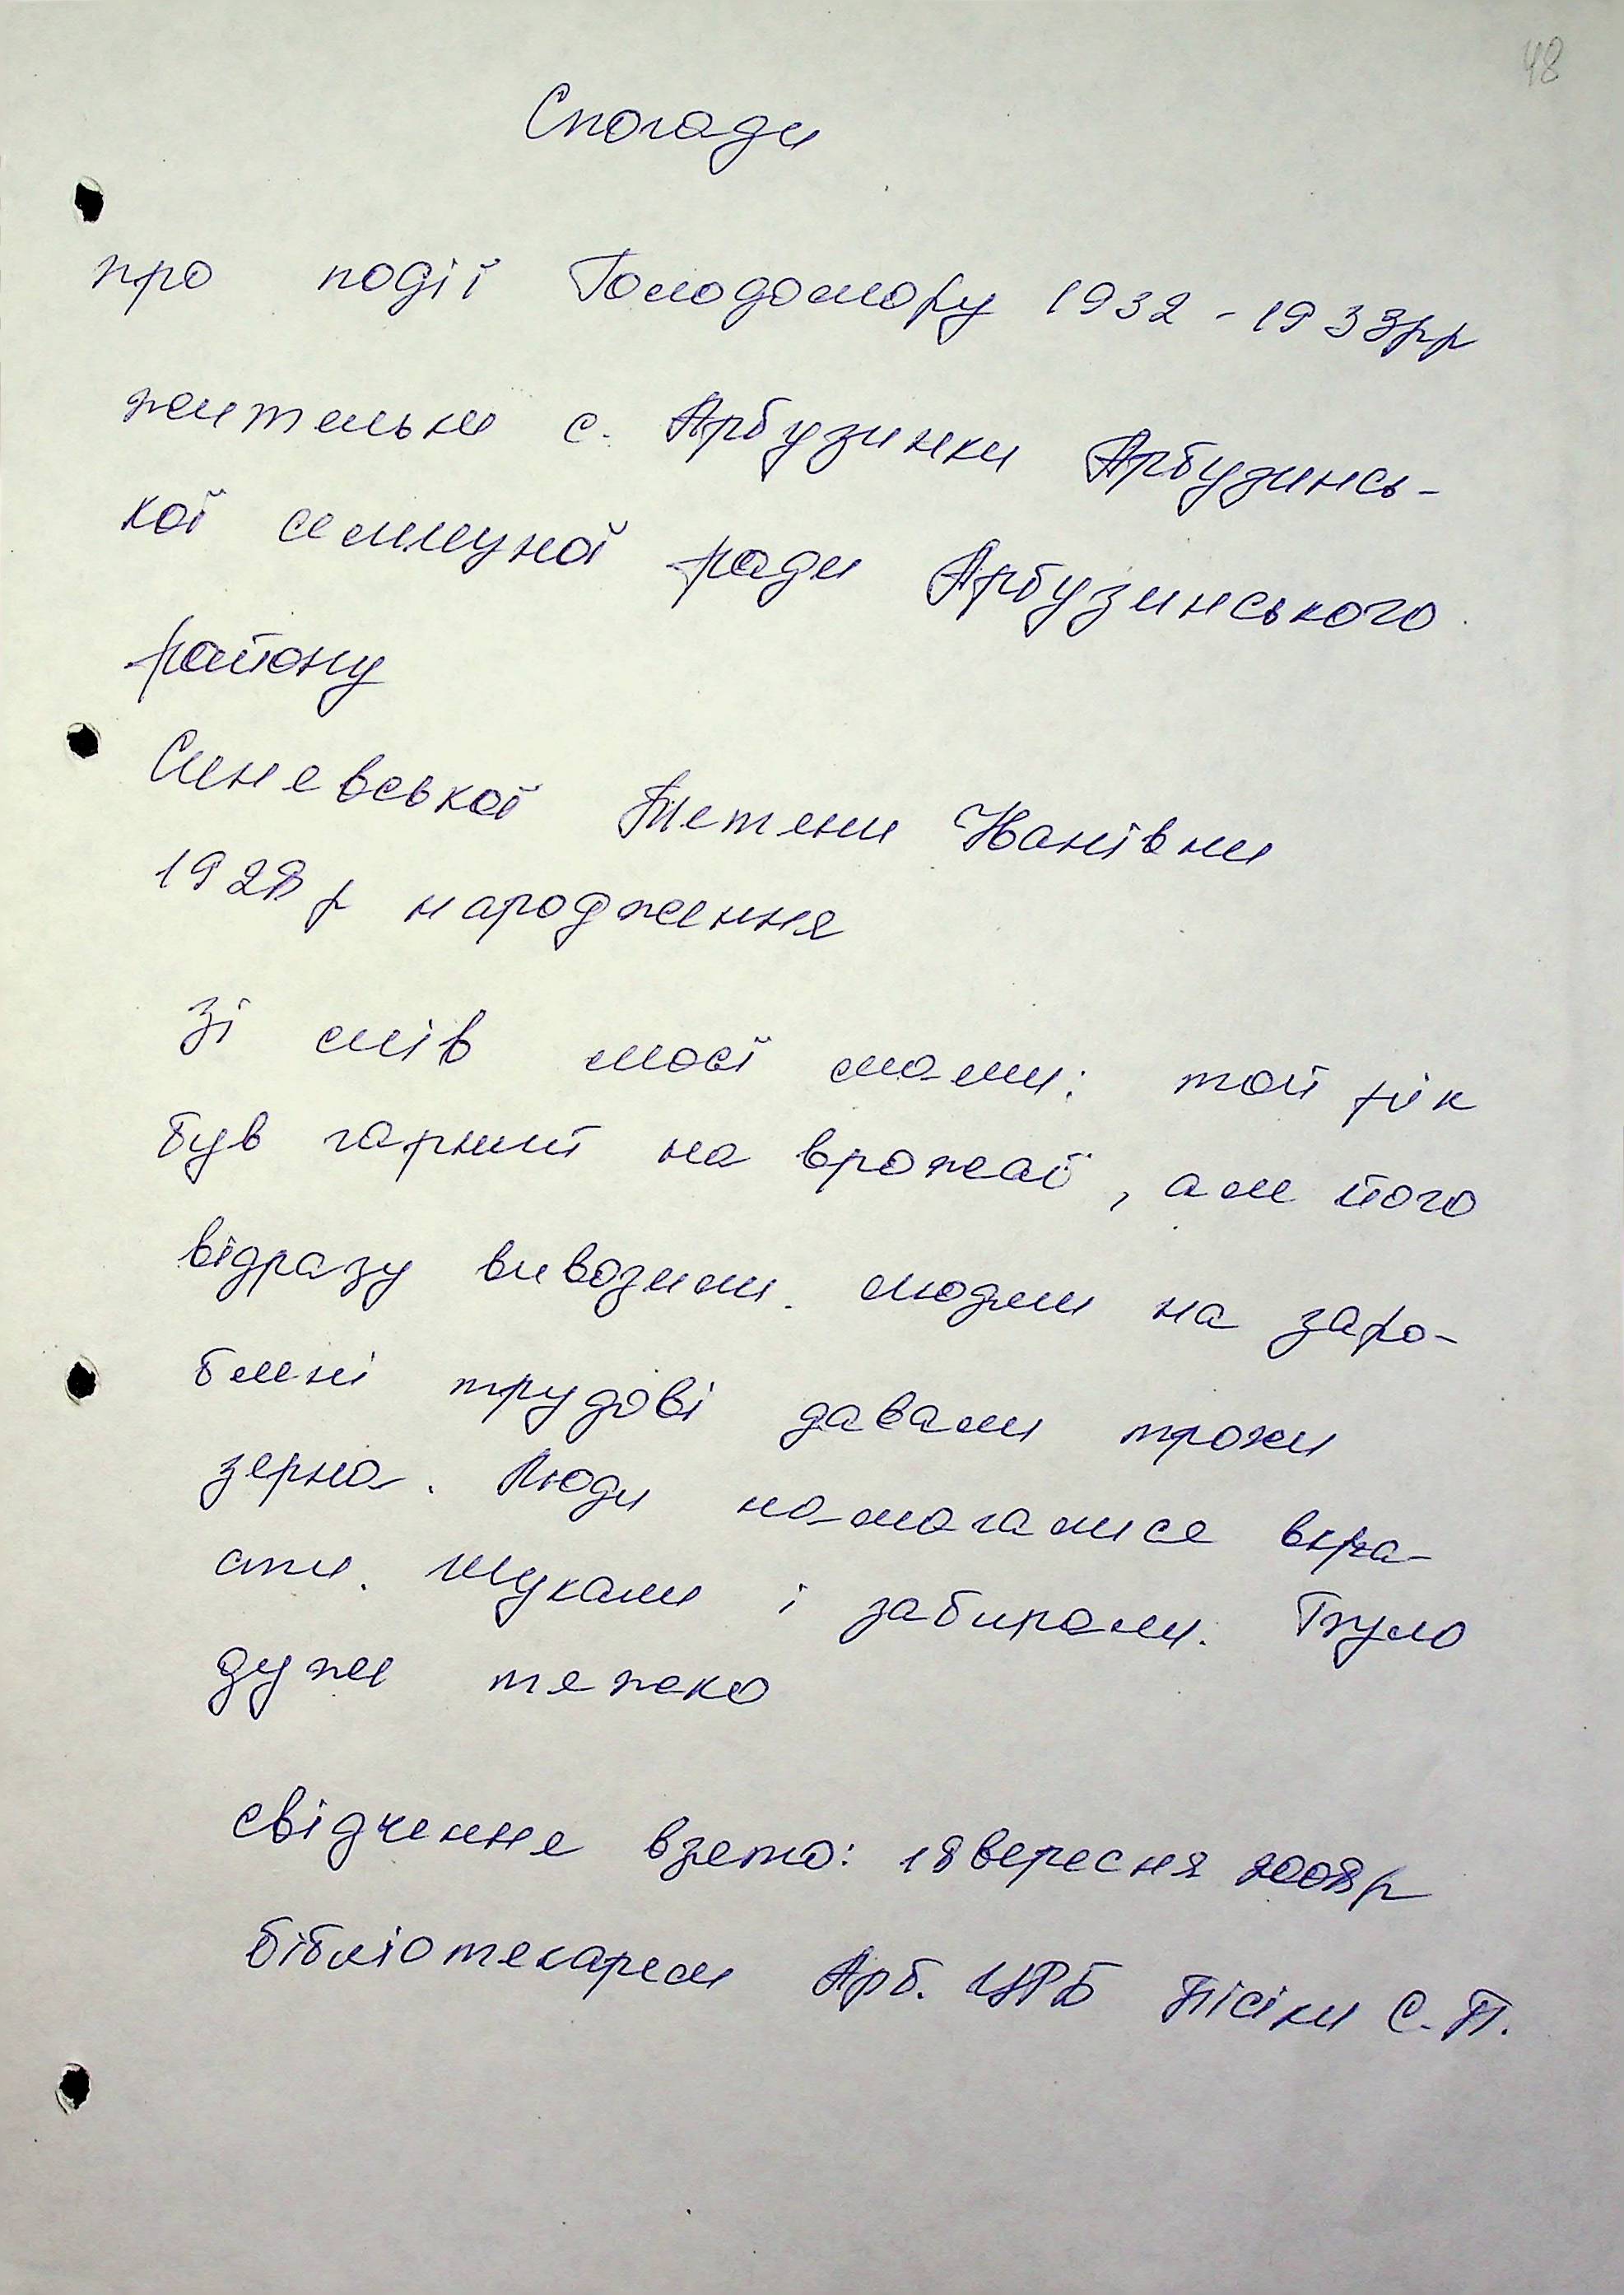 48
Спогади
про події Голодомору 1932-1933рр
жительки с. Арбузинки Арбузинсь-
кої селищної ради Арбузинського
району
Синевської Тетяни Іванівни
1928 р народження
Зі слів моєї мами: той рік
був гарний на врожаї, але його
відразу вивозили. людям на заро-
блені трудові давали трохи
зерна. Люди намагалися вкра-
сти. Шукали і забирали. Було
дуже тяжко
свідчення взято: 18 вересня 2008р
бібліотекарем Арб. ЦРБ Пісіки С.П.